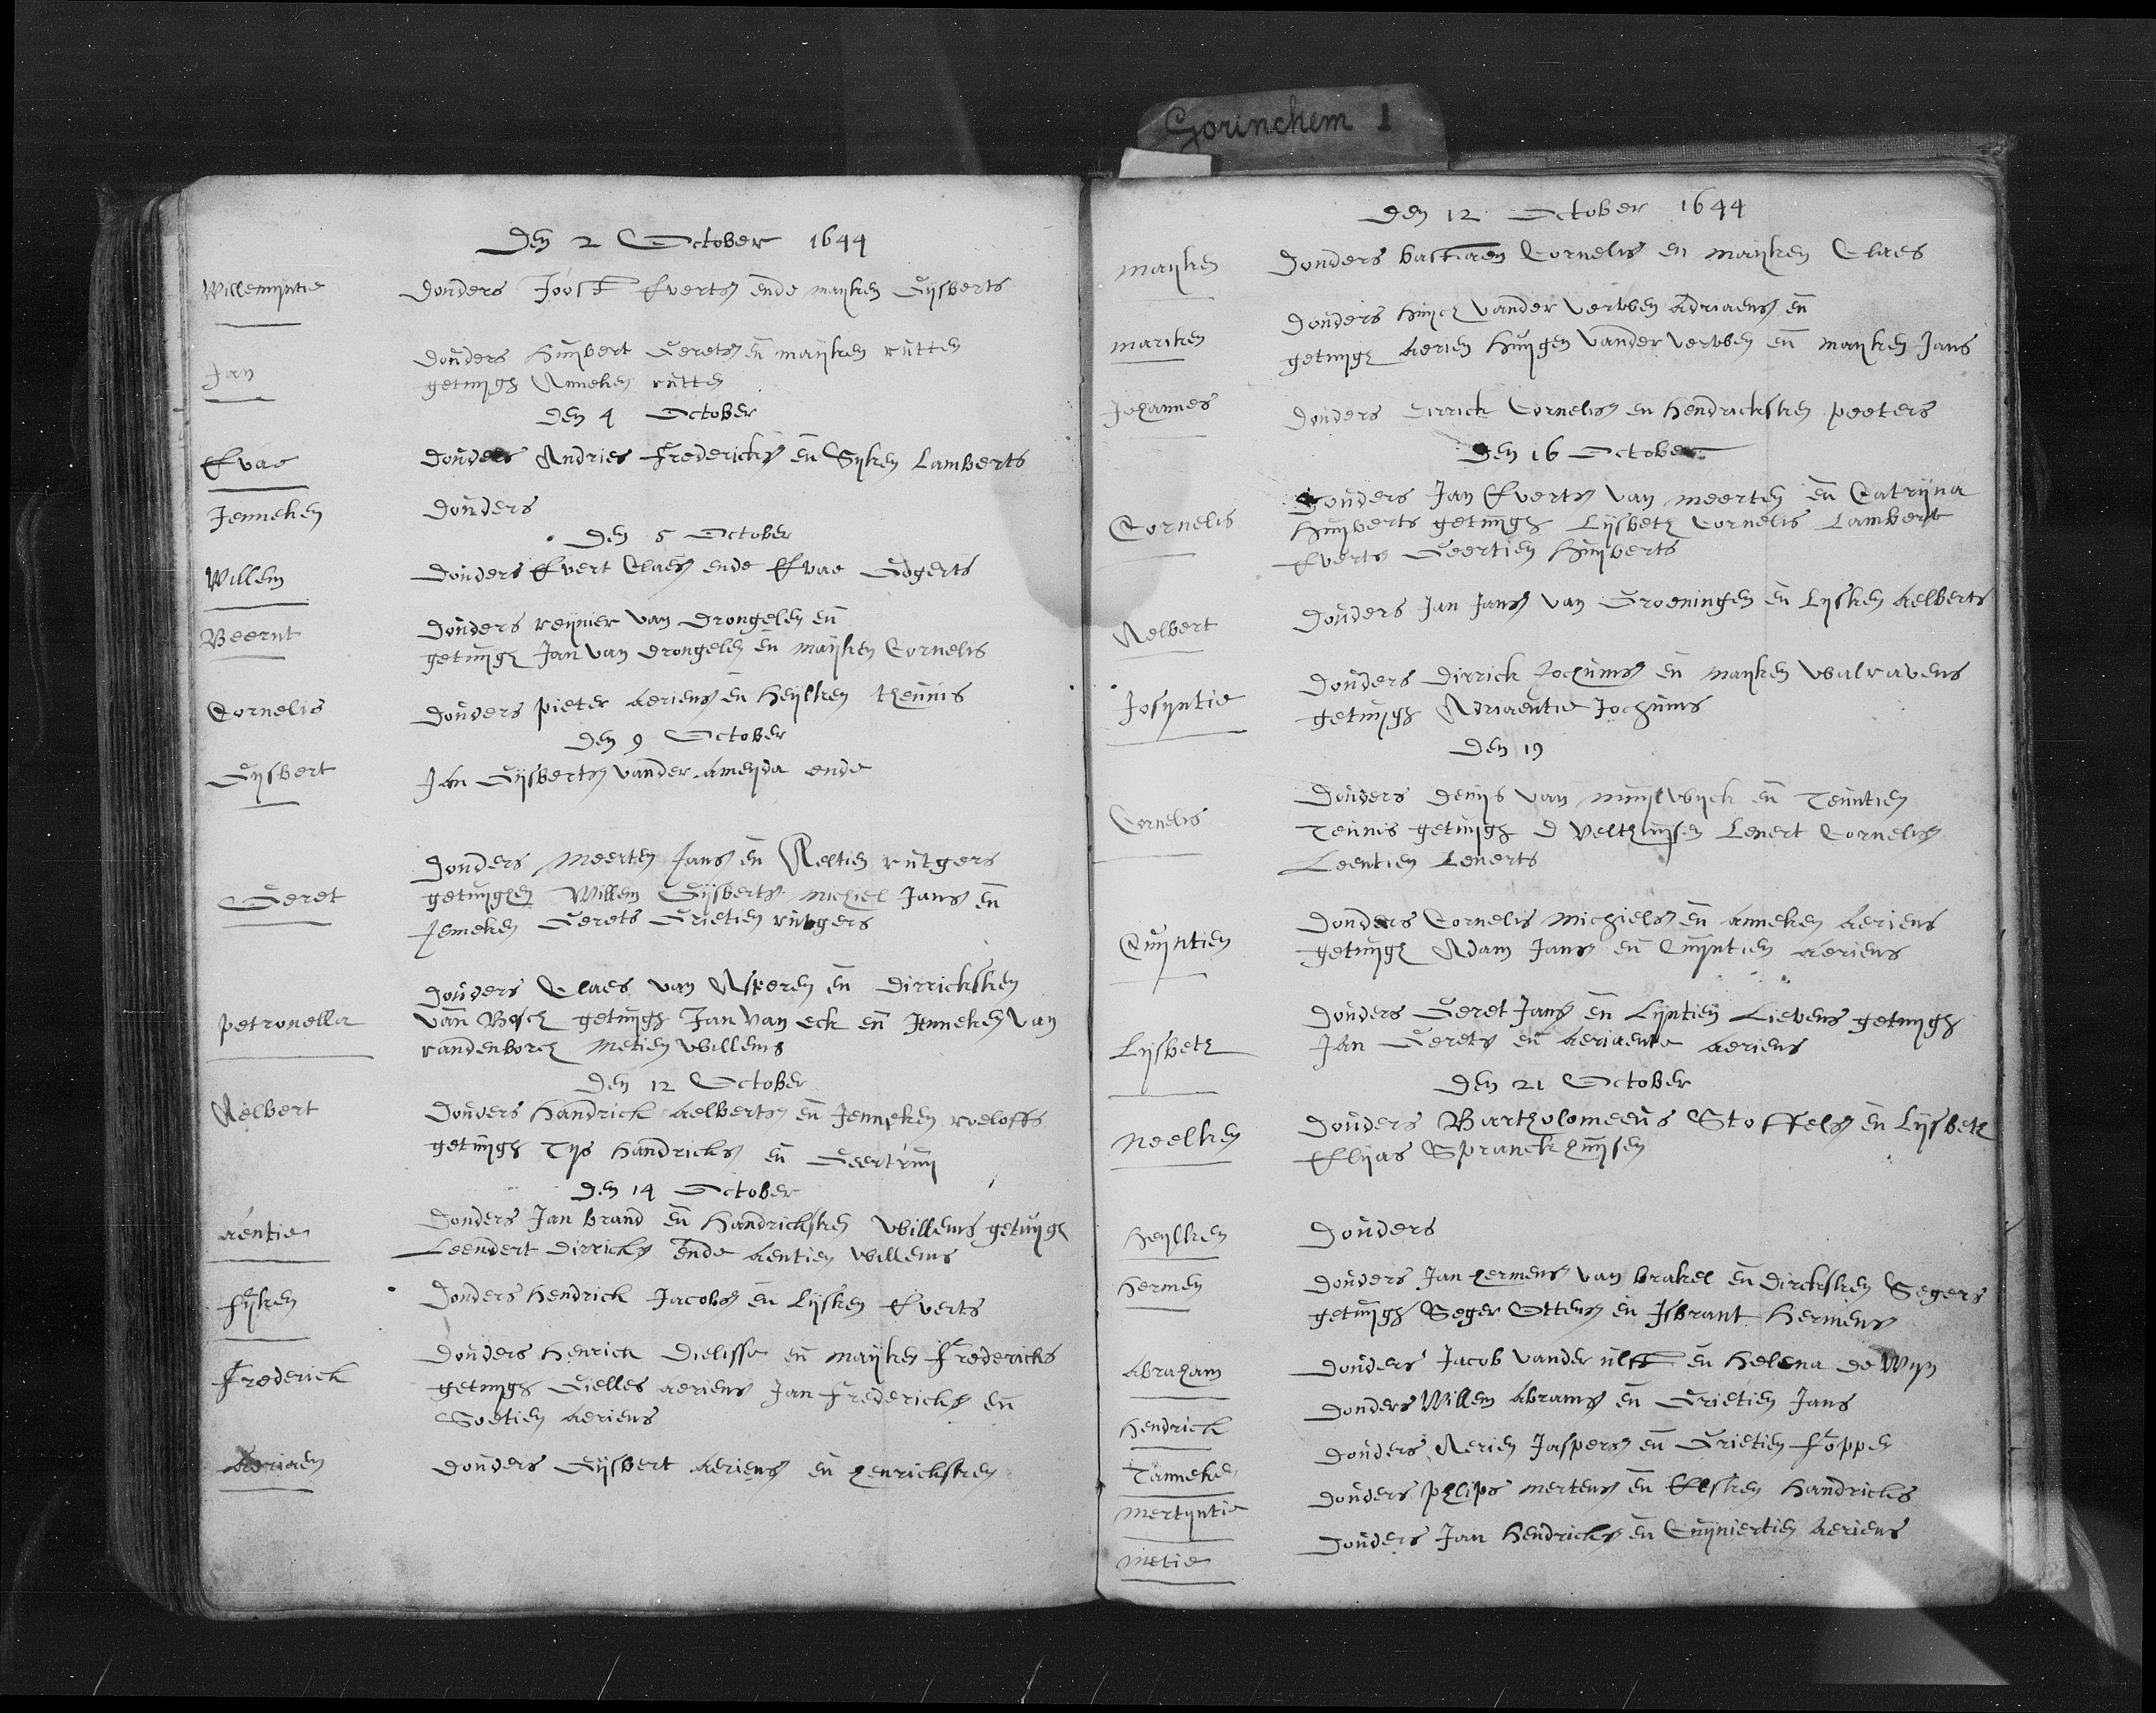 Gorinchem 1
Den 2 October 1644
Willemyntie
Douders Joost Everts ende mayken Gysberts
Jan
Douders Huybert Gerets en mayken rutten
getuygh Anneken rutten
Den 4 October
Evae
Douders Andries Fredericks en Syken Lamberts
Jenneken
Douders
Den 5 October
Willem
Douders Evert Claes ende Evae Gogerts
Beernt
Douders reynier van Drongelen en
getuygh Jan van Drongelen en mayken Cornelis
Cornelis
Douders pieter Aeriens en Heylken theunis
Den 9 October
Gysbert
Jan Gysberts vander Ameyda ende
Geret
Douders Meerten Jans en Aeltien rutgers
getuyghen Willem Gysberts Michiel Jans en
Jenneken Gerets Grietien rutgers
petronella
Douders Claes van Asperen en Dirricksken
van Besch getuygh Jan van eck en Jenneken van
randenborch Metien Willems
Den 12 October
Aelbert
Douders Handrick Aelberts en Jenneken roeloffs
getuygh Tys Handricks en Geertruy
Den 14 October
Aentie
Douders Jan brand en Handricksken Willems getuygh
Leendert Dirricks ende Aentien Willems
fyken
Douders Hendrick Jacobs en Lysken Everts
Frederick
Douders Henrick Dielisse en mayken Fredericks
getuygh Gielles Aeriens Jan Fredericks en
Soetien Aeriens
Adriaen
Douders Gysbert Aeriens en henricksken
Den 12 October 1644
Mayken
Douders bastiaen Cornelis en mayken Claes
Mariken
Douders Huych vander Werven Adriaens en
getuygh Aerien Huygen vander Werven en mayken Jans
Johannes
Douders Dirrick Cornelis en Hendricksken peeters
Den 16 October
Cornelis
Douders Jan Everts van meerten en Catryna
Huyberts getuygh Lysbeth Cornelis Lambert
Everts Geertien Huyberts
Aelbert
Douders Jan Jans van Groeningen en Lysken Aelberts
Josyntie
Douders Dirrick Jochums en mayken Walravens
getuygh Adriaentie Jochums
Den 19
Cornelis
Douders Denys van Muylwyck en Teuntien
Teunis getuygh D Velthuysen Lenert Cornelis
Leentien Lenerts
Quyntien
Douders Cornelis Michiels en Anneken Aeriens
getuygh Adam Jans en Quyntien Aeriens
Lysbeth
Douders Geret Jans en Lyntien Lievens getuygh
Jan Gerets en Aeriaentie Aeriens
Den 21 October
Neelken
Douders Bartholomeeus Stoffels en Lysbeth
Elyas Spranckhuysen
Heylken
Douders
Hermen
Douders Jan hermens van brakel en Dircksken Segers
getuygh Seger Ottens en Isbrant Hermens
Abraham
Douders Jacob vander ulft en Helena de Wyn
Hendrick
Douders Willem Abrams en Grietien Jans
Tanneken
Douders Aerien Jaspers en Grietien foppen
Mertyntie
Douders philips mertens en Elsken Handricks
Metie
Douders Jan Hendricks en Quyniertien Aeriens